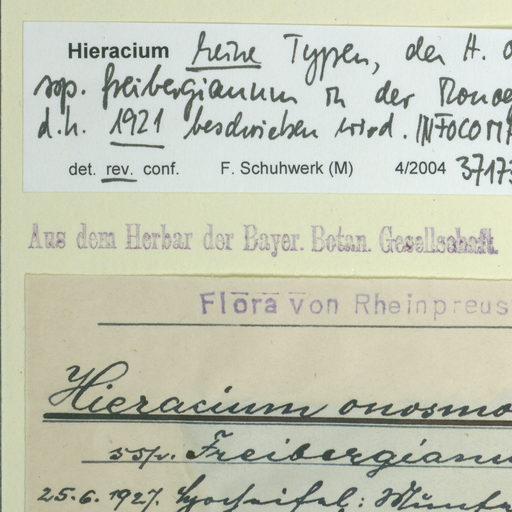 Hieracium keine Typen, da H. o
ssp. freibergianum in der Monog
d.h. 1921 beschrieben wird. INFOCOMP
det. rev. conf. F. Schuhwerk (M) 4/2004 37173
Aus dem Herbar der Bayer. Botan. Gesellschaft.
Flora von Rheinpreus
Hieracium onosmo
ssp. Freibergianu
25.6.1927. Hocheifel: Münste